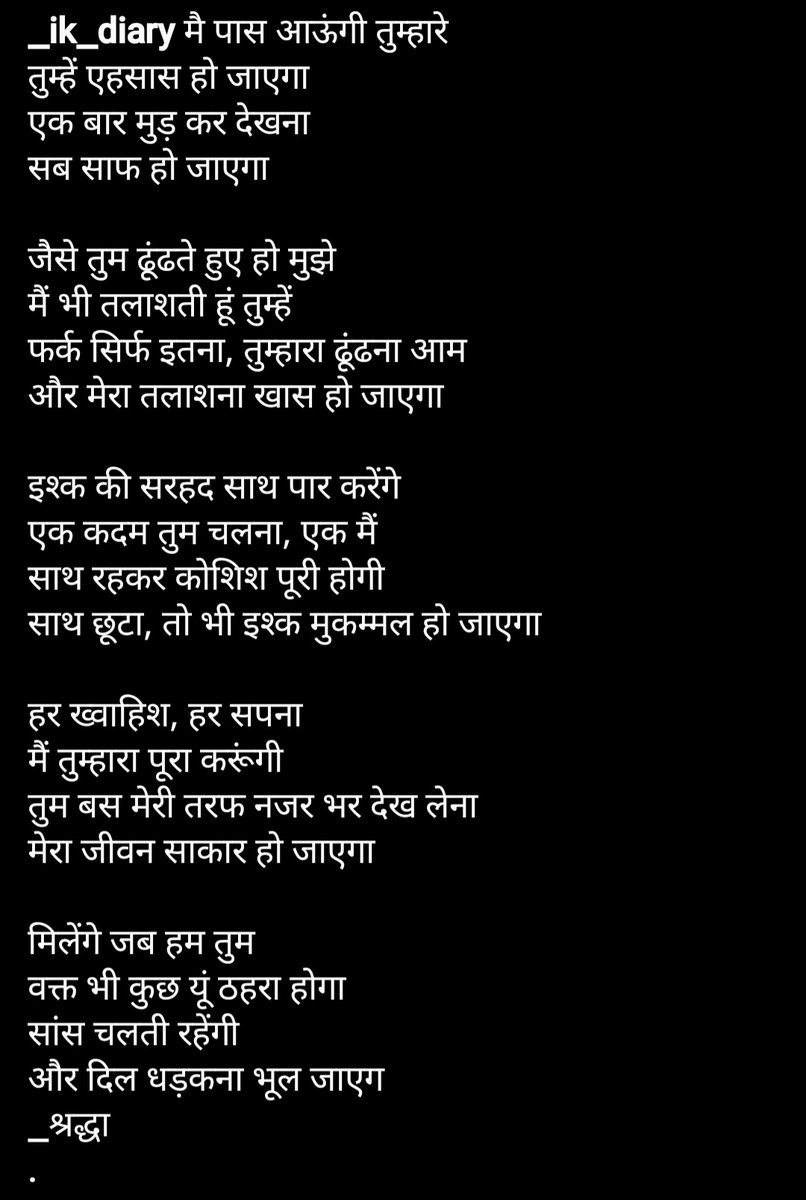 _ik_diary मै पास आऊंगी तुम्हारे
तुम्हें एहसास हो जाएगा
एक बार मुड़ कर देखना
सब साफ हो जाएगा
जैसे तुम ढूंढते हुए हो मुझे
मैं भी तलाशती हूं तुम्हें
फर्क सिर्फ इतना, तुम्हारा ढूंढना आम
और मेरा तलाशना खास हो जाएगा
इश्क की सरहद साथ पार करेंगे
एक कदम तुम चलना, एक मैं
साथ रहकर कोशिश पूरी होगी
साथ छूटा, तो भी इश्क मुकम्मल हो जाएगा
हर ख्वाहिश, हर सपना
मैं तुम्हारा पूरा करूंगी
तुम बस मेरी तरफ नजर भर देख लेना
मेरा जीवन साकार हो जाएगा
मिलेंगे जब हम तुम
वक्त भी कुछ यूं ठहरा होगा
सांस चलती रहेंगी
और दिल धड़कना भूल जाएग
_श्रद्धा
.